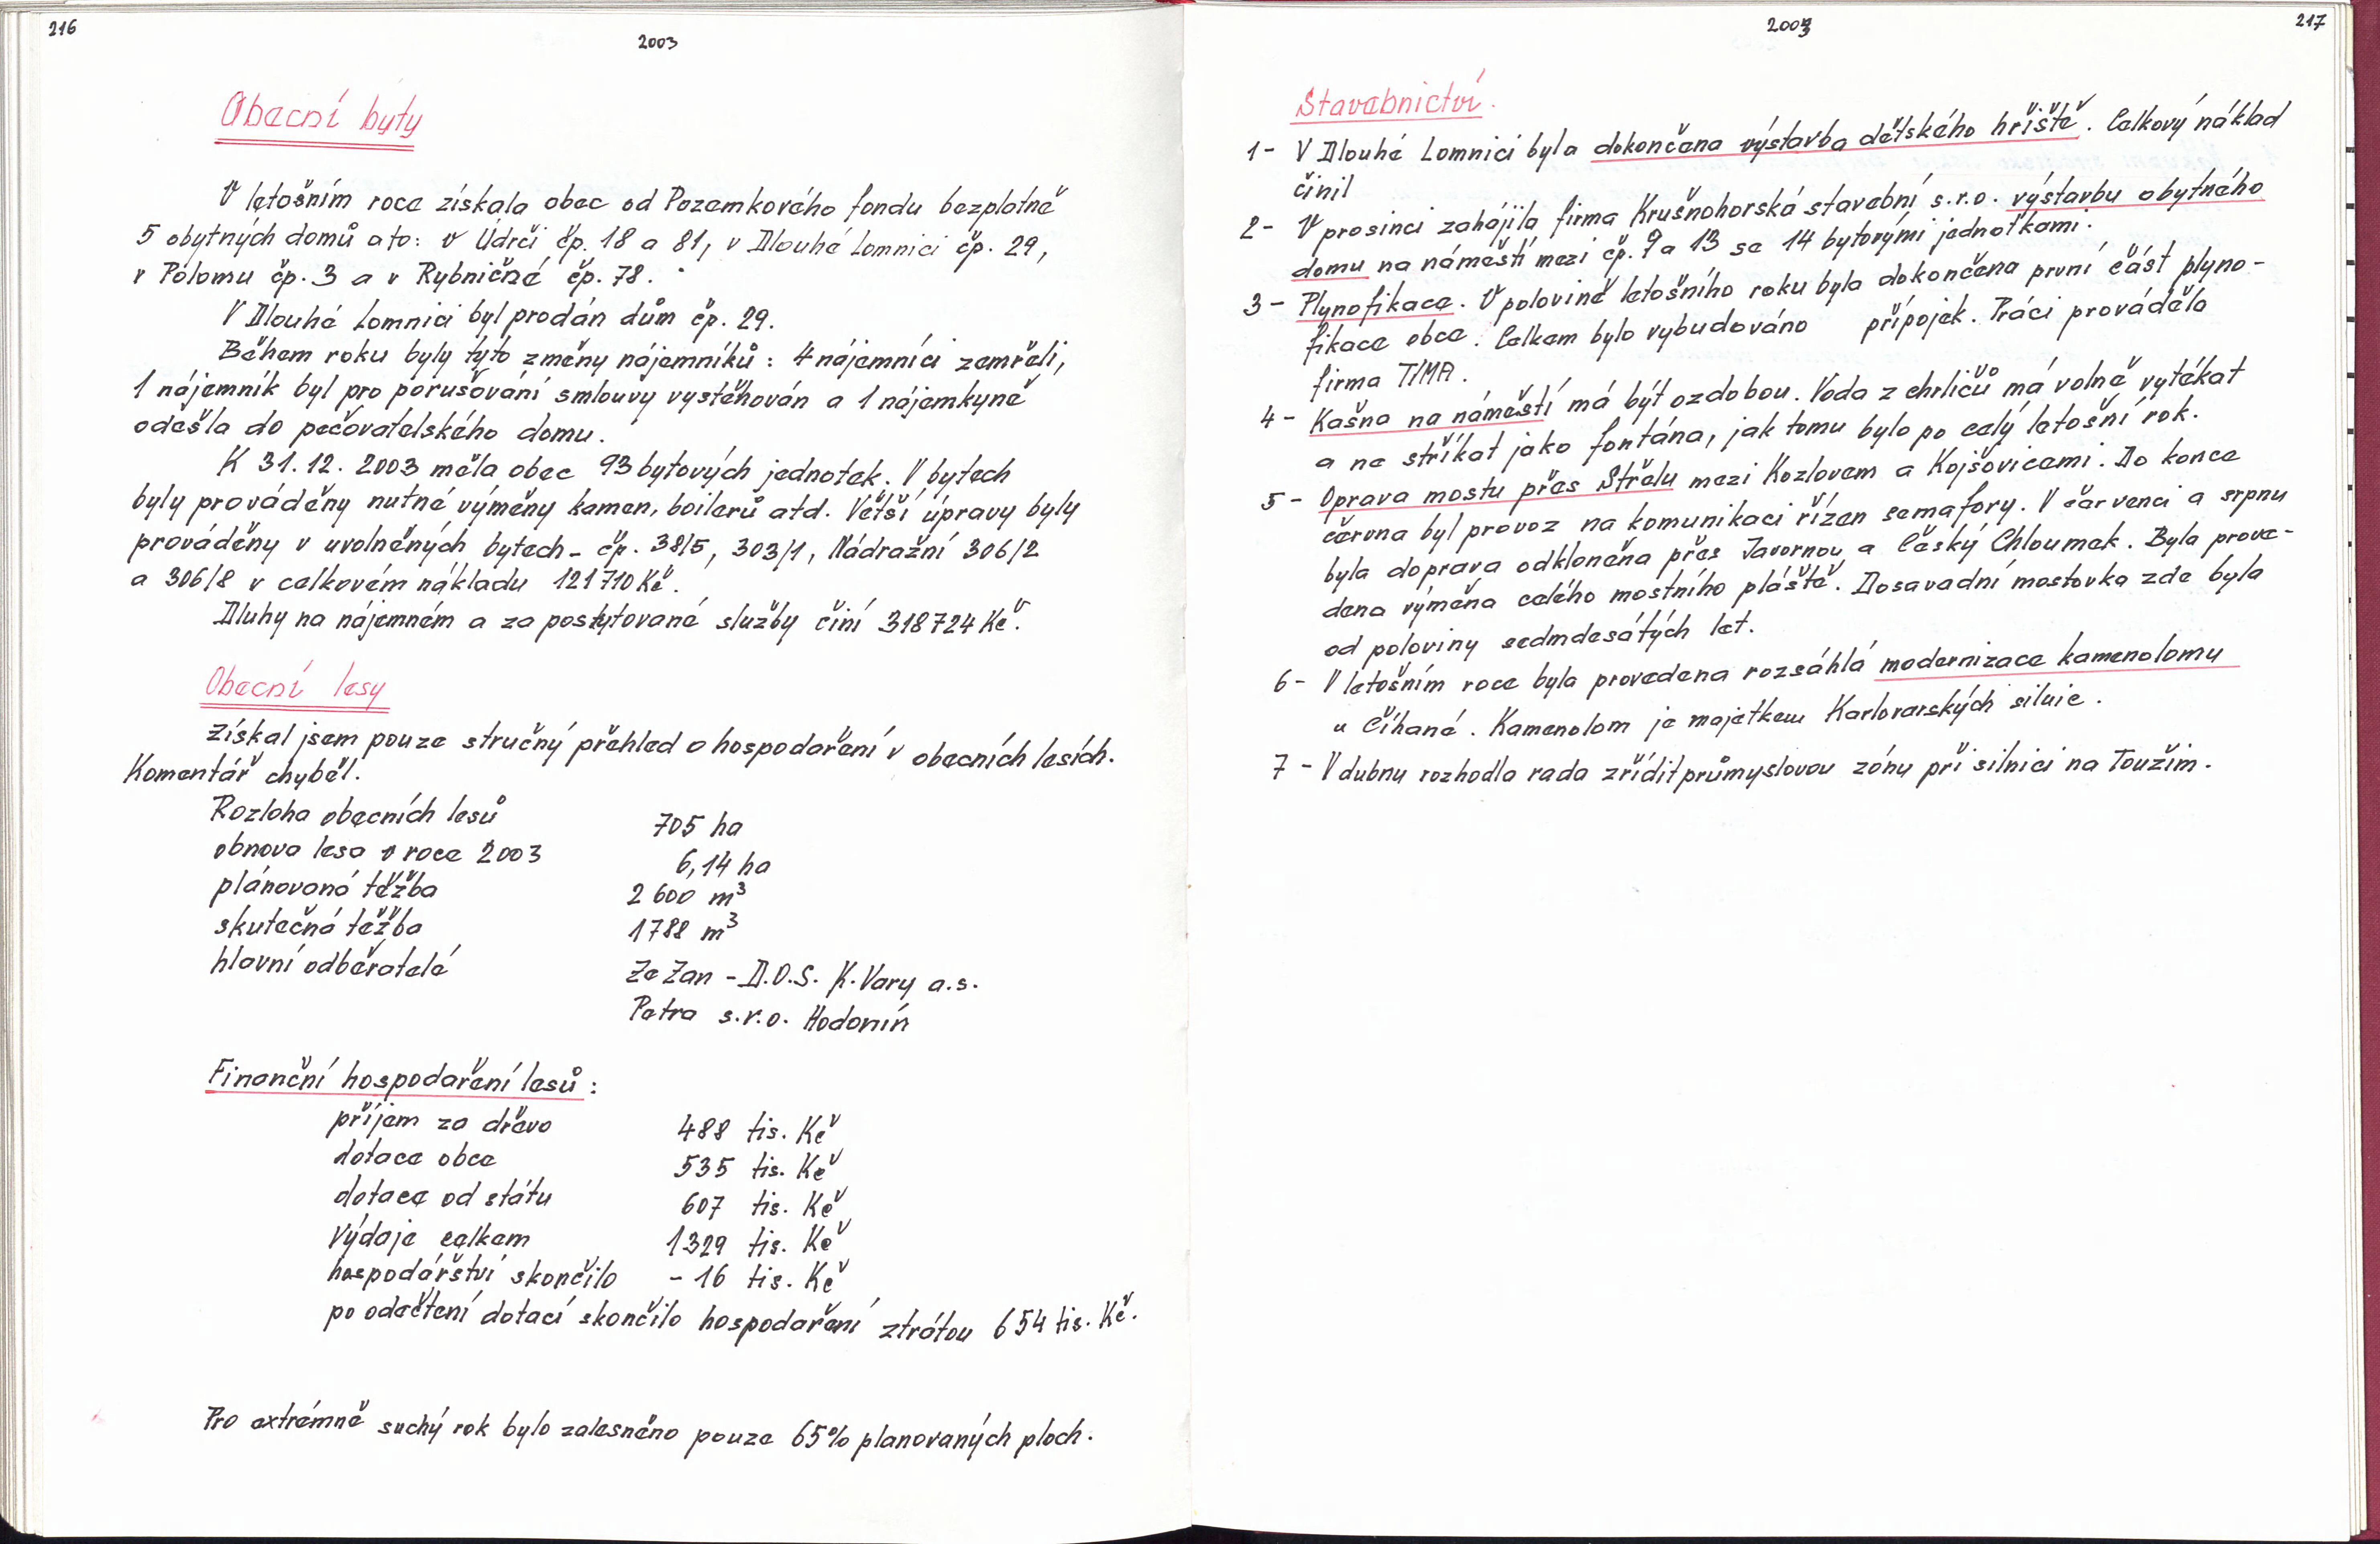 216
2003
Obecní byty
V letošním roce získala obec od Pozemkového fondu bezplatně
5 obytných domů a to: v Údrči čp. 18 a 81, v Dlouhé Lomnici čp. 29,
v Polomu čp. 3 a v Rybničné čp. 78.
V Dlouhé Lomnici byl prodán dům čp. 29.
Během roku byly tyto změny nájemníků: 4 nájemníci zemřeli,
1 nájemník byl pro porušování smlouvy vystěhován a 1 nájemkyně
odešla do pečovatelského domu.
K 31. 12. 2003 měla obec 93 bytových jednotek. V bytech
byly prováděny nutné výměny kamen, boilerů atd. Větší úpravy byly
prováděny v uvolněných bytech - čp. 38/5, 303/1, Nádražní 306/2
a 306/8 v celkovém nákladu 121 710 Kč.
Dluhy na nájemném a za poskytované služby činí 318 724 Kč.
Obecní lesy
Získal jsem pouze stručný přehled o hospodaření v obecních lesích.
Komentář chyběl.
Rozloha obecních lesů 705 ha
obnova lesa v roce 2003 6,14 ha
plánovaná těžba 2 600 m³
skutečná těžba 1788 m³
hlavní odběratelé Ze Zan - D.O.S. K. Vary a.s.
Petra s.r.o. Hodonín
Finanční hospodaření lesů:
příjem za dřevo 488 tis. Kč
dotace obce 535 tis. Kč
dotace od státu 607 tis. Kč
Výdaje celkem 1329 tis. Kč
hospodářství skončilo - 16 tis. Kč
po odečtení dotací skončilo hospodaření ztrátou 654 tis. Kč.
Pro extrémně suchý rok bylo zalesněno pouze 65% planovaných ploch.
2003
217
Stavebnictví.
1- V Dlouhé Lomnici byla dokončena výstavba dětského hřiště. Celkový náklad
činil
2- V prosinci zahájila firma Krušnohorská stavební s.r.o. výstavbu obytného
domu na náměstí mezi čp. 9 a 13 se 14 bytovými jednotkami.
3- Plynofikace. V polovině letošního roku byla dokončena první část plyno-
fikace obce. Celkem bylo vybudováno přípojek. Práci prováděla
firma TIMA.
4- Kašna na náměstí má být ozdobou. Voda z chrličů má volně vytékat
a ne stříkat jako fontána, jak tomu bylo po celý letošní rok.
5- Oprava mostu přes Střelu mezi Kozlovem a Kojšovicemi. Do konce
června byl provoz na komunikaci řízen semafory. V červenci a srpnu
byla doprava odkloněna přes Javornou a Český Chloumek. Byla prove-
dena výměna celého mostního pláště. Dosavadní mostovka zde byla
od poloviny sedmdesátých let.
6- V letošním roce byla provedena rozsáhlá modernizace kamenolomu
u Číhané. Kamenolom je majetkem Karlovarských silnic.
7- V dubnu rozhodla rada zřídit průmyslovou zónu při silnici na Toužim.